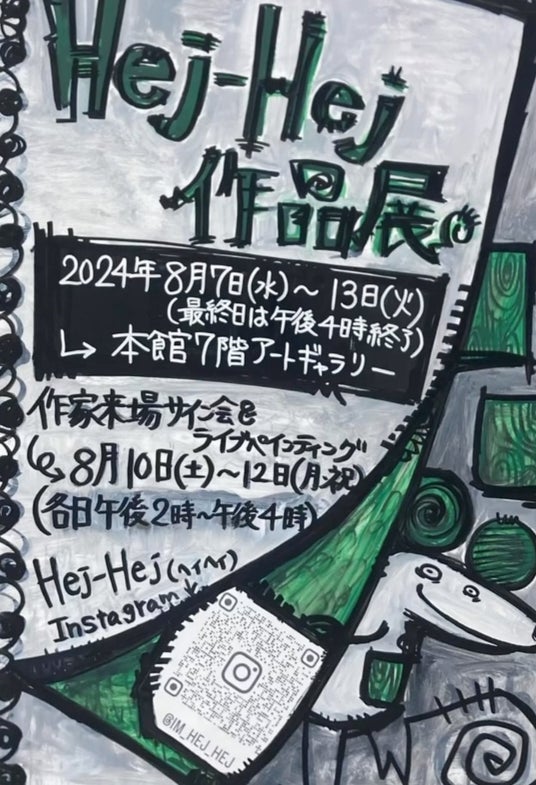 Hej-Hej
作品展。
2024年8月7日(水)～13日(火)
(最終日は午後4時終了)
↳ 本館7階アートギャラリー
作家来場サイン会&
ライブペインティング
8月10日(土)～12日(月・祝)
(各日午後2時～午後4時)
Hej-Hej(ヘイヘイ)
Instagram
@IM_HEJ_HEJ